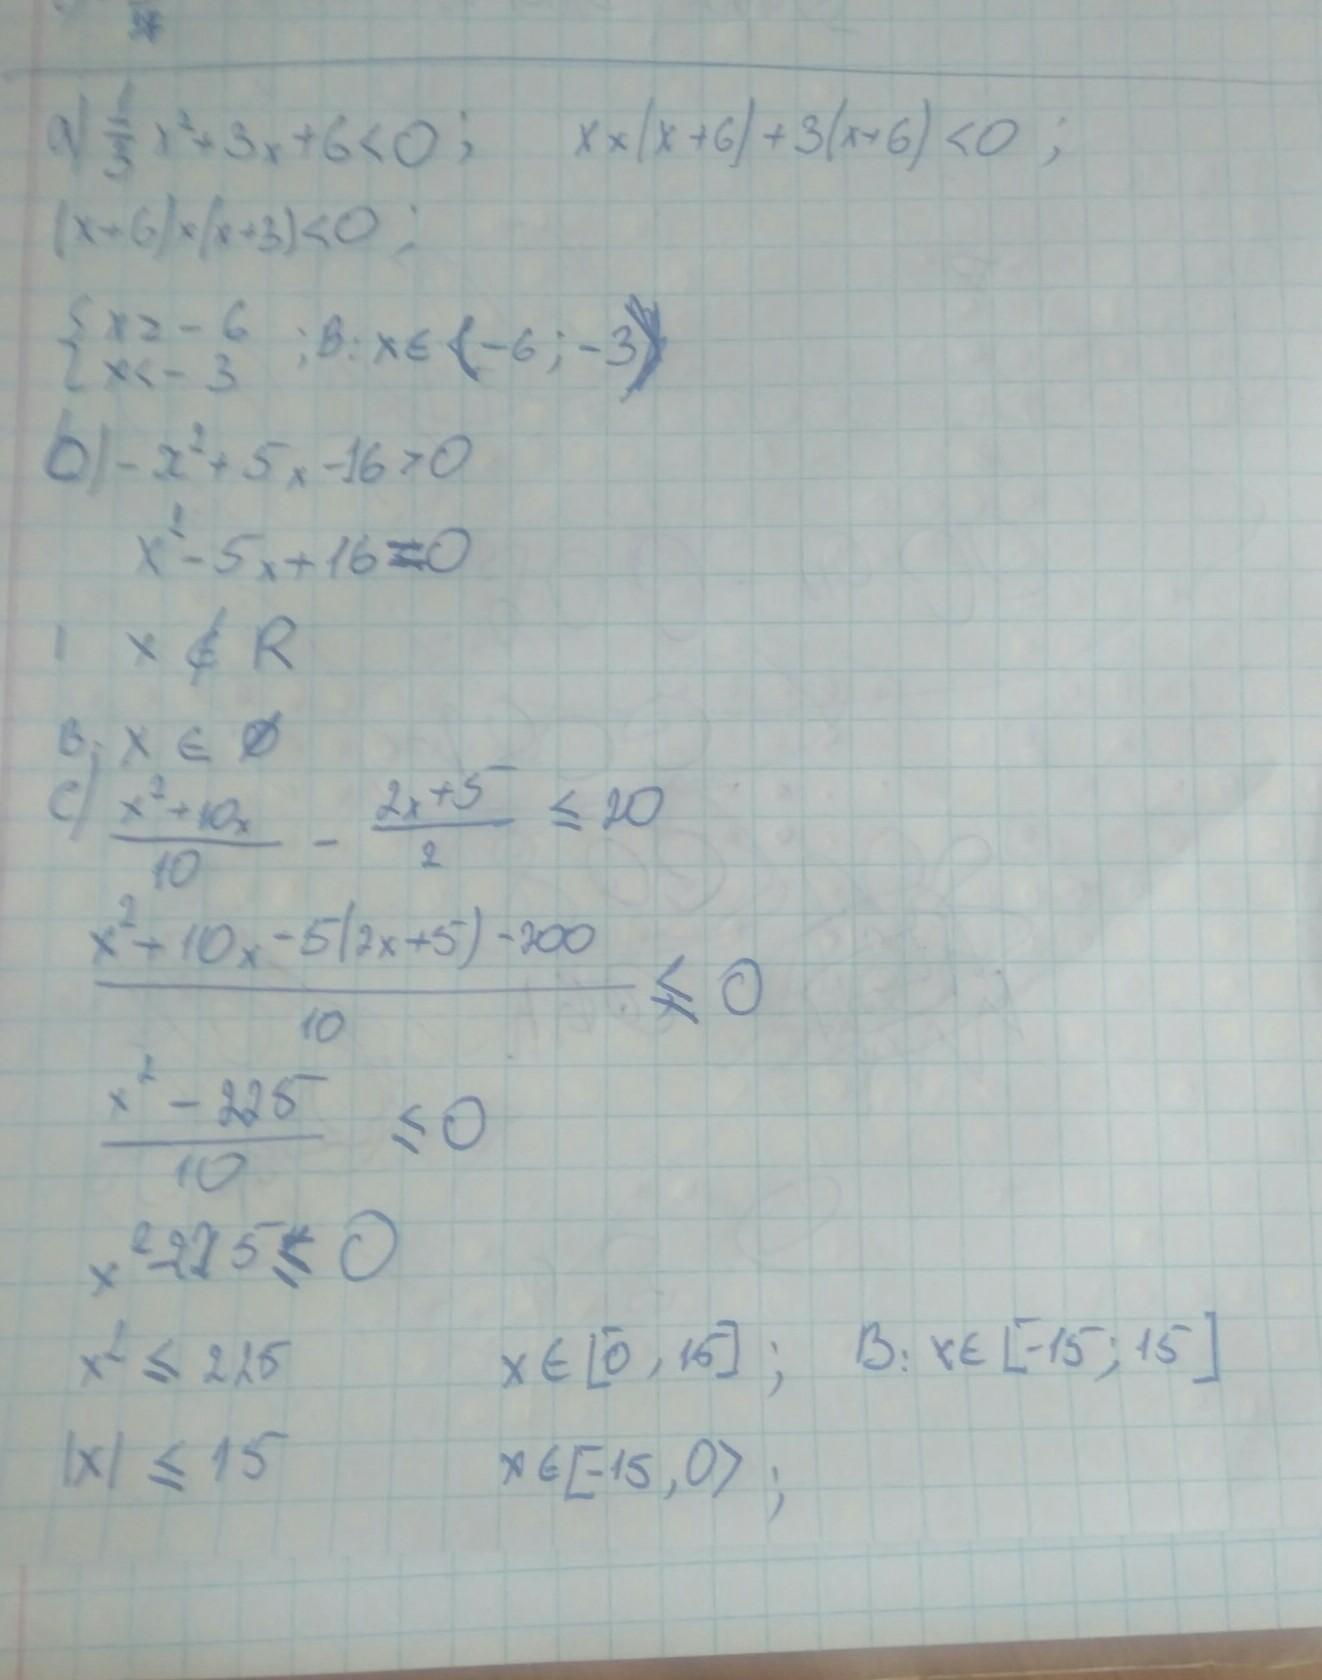 a) 1/3 x² + 3x + 6 < 0 ; x × (x + 6) + 3(x + 6) < 0 ;
(x + 6) × (x + 3) < 0 ;
{ x > - 6
{ x < - 3 ; В: x ∈ (-6 ; -3)
b) - x² + 5x - 16 > 0
x² - 5x + 16 = 0
x ∉ R
В: x ∈ ∅
c) (x² + 10x)/10 - (2x + 5)/2 ≤ 20
(x² + 10x - 5(2x + 5) - 200)/10 ≤ 0
(x² - 225)/10 ≤ 0
x² - 225 ≤ 0
x² ≤ 225 x ∈ [0, 15] ; В: x ∈ [-15; 15]
|x| ≤ 15 x ∈ [-15, 0> ;